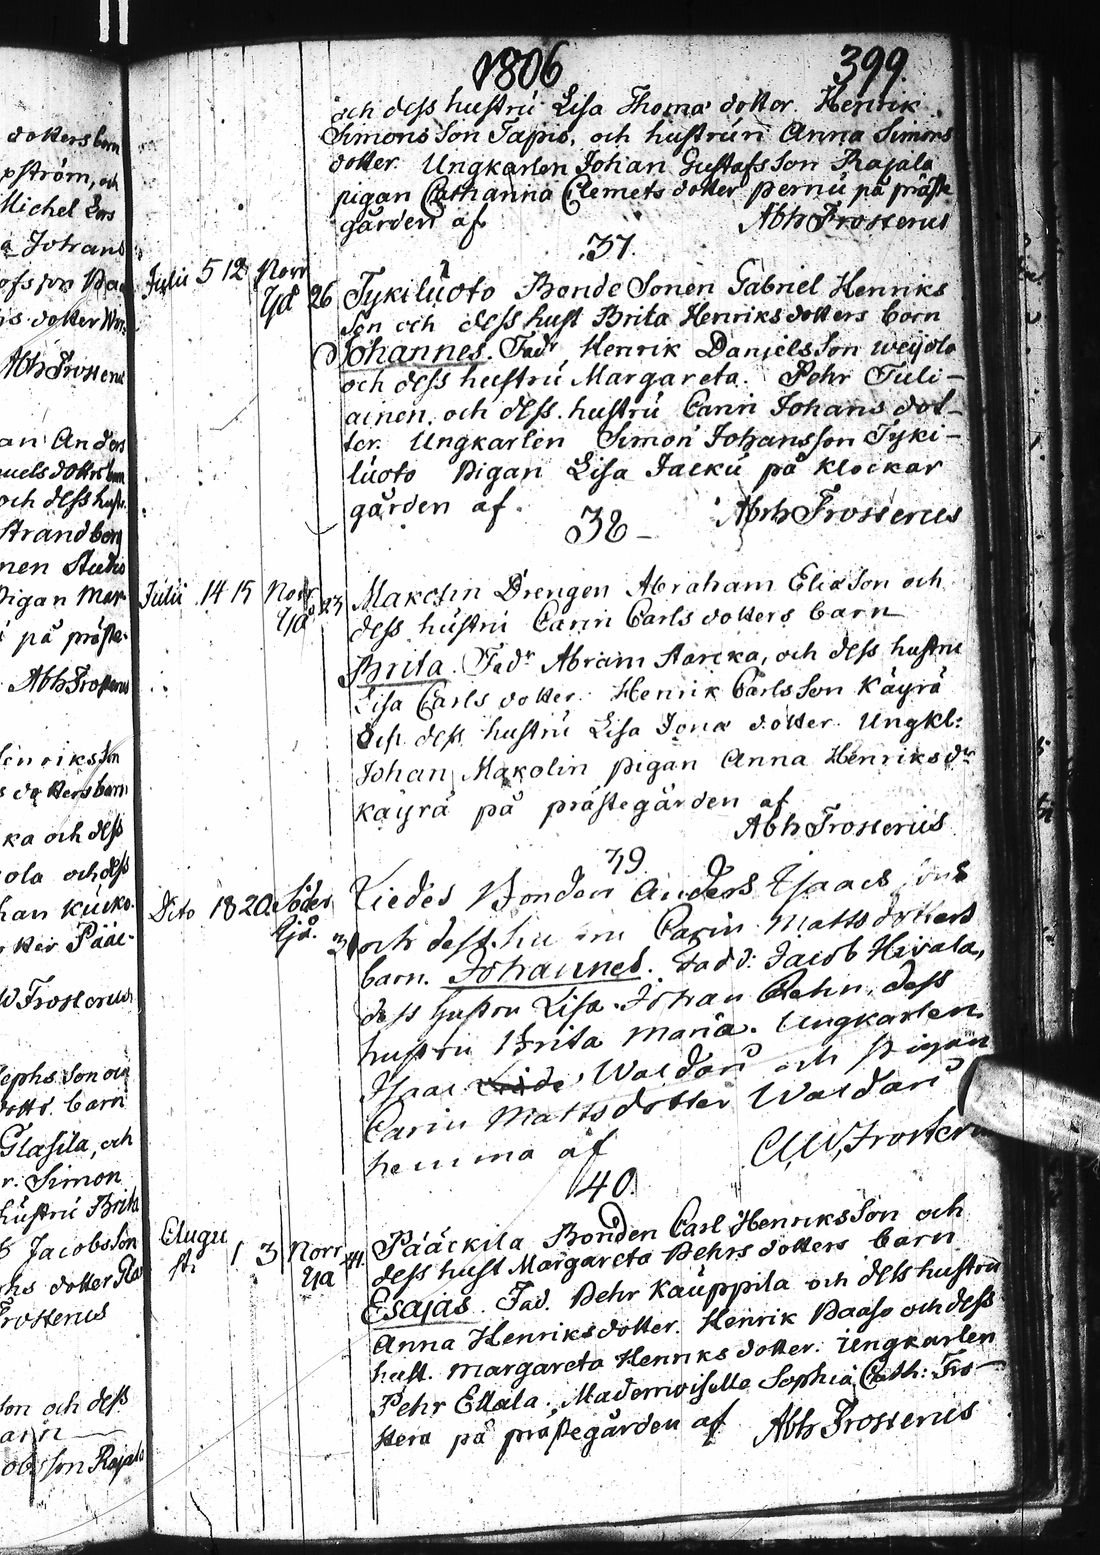 1806 399.
och dess hustru Lisa Thomæ dotter. Henrik
Simons Son Tapio, och hustrun Anna Simons
dotter. Ungkarlen Johan Gustafs Son Rajala
pigan Cathanna Clemets dotter pernu på präste
gården af. Abh Frosterus
37.
Julii 5 12 Norr Ijå 26 Tykiluoto Bonde Sonen Gabriel Henriks
Son och dess hust Brita Henriksdotters born
Johannes. Fadr Henrik Danjelsson weijola
och dess hustru Margareta. Pehr Tuli-
ainen. och dess hustru Carin Johans dot-
ter. Ungkarlen Simon Johansson Tyki-
luoto Pigan Lisa Jaeku på klockar
gården af. Abrh Frosterus
38-
Julii 14 15 Norr Ijå 23 Makolin Drengen Abraham Eliæson och
dess hustru Carin Carls dotters barn
Brita. Fadr Abram Starcka, och dess hustru
Lisa Carls dotter. Henrik Carlsson Käyrä
Och dess hustru Lisa Jonæ dotter. Ungkl:
Johan Makolin pigan Anna Henriksdr
Käyrä på prästegården af
Abh Frosterus
39.
Dito 18 20 Söder Ijå. Liedes Bonden Anders Isaacs sons
och dess hu Carin Matts dotters
barn. Johannes. Fadd: Jacob Hivala,
dess hustru Lisa. Johan Rehn, dess
hustru Brita Maria. Ungkarlen
Isaac Waldari och pigan
Carin Mattsdotter Waldari
hemma af C.W. Froster
40.
Augusti 1 3 Norr Ija Pääckila Bonden Carl Henriksson och
dess hust Margareta Pehrs dotters barn
Esajas. Fad. Pehr Kauppila och dess hustru
Anna Henriksdotter. Henrik Paaso och dess
hust. Margareta Henriks dotter. Ungkarlen
Pehr Ellala. Mademoiselle Sophia Cath: Fro-
stera på prästegården af Abh Frosterus
dotters barn
pström, och
Michel Lars
a Johans
Abh Frosterus
an Anders
och dess hust.
Strandberg
Pigan Mar
på präste-
Abh Frosterus
Henriksson
s dotters barn
ka och dess
ola och dess
han Kuiko-
tter Pääc-
W Frosterus
sephs Son och
dotts barn
Glasila, och
r. Simon
hustru Brita
Jacobs Son
Frosterus
son och dess